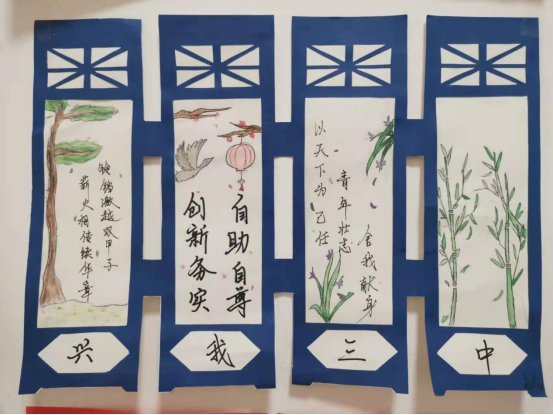 铿锵激越双甲子
薪火相传续华章
自助自尊
创新务实
以天下为己任
青年壮志
舍我献身
兴
我
三
中